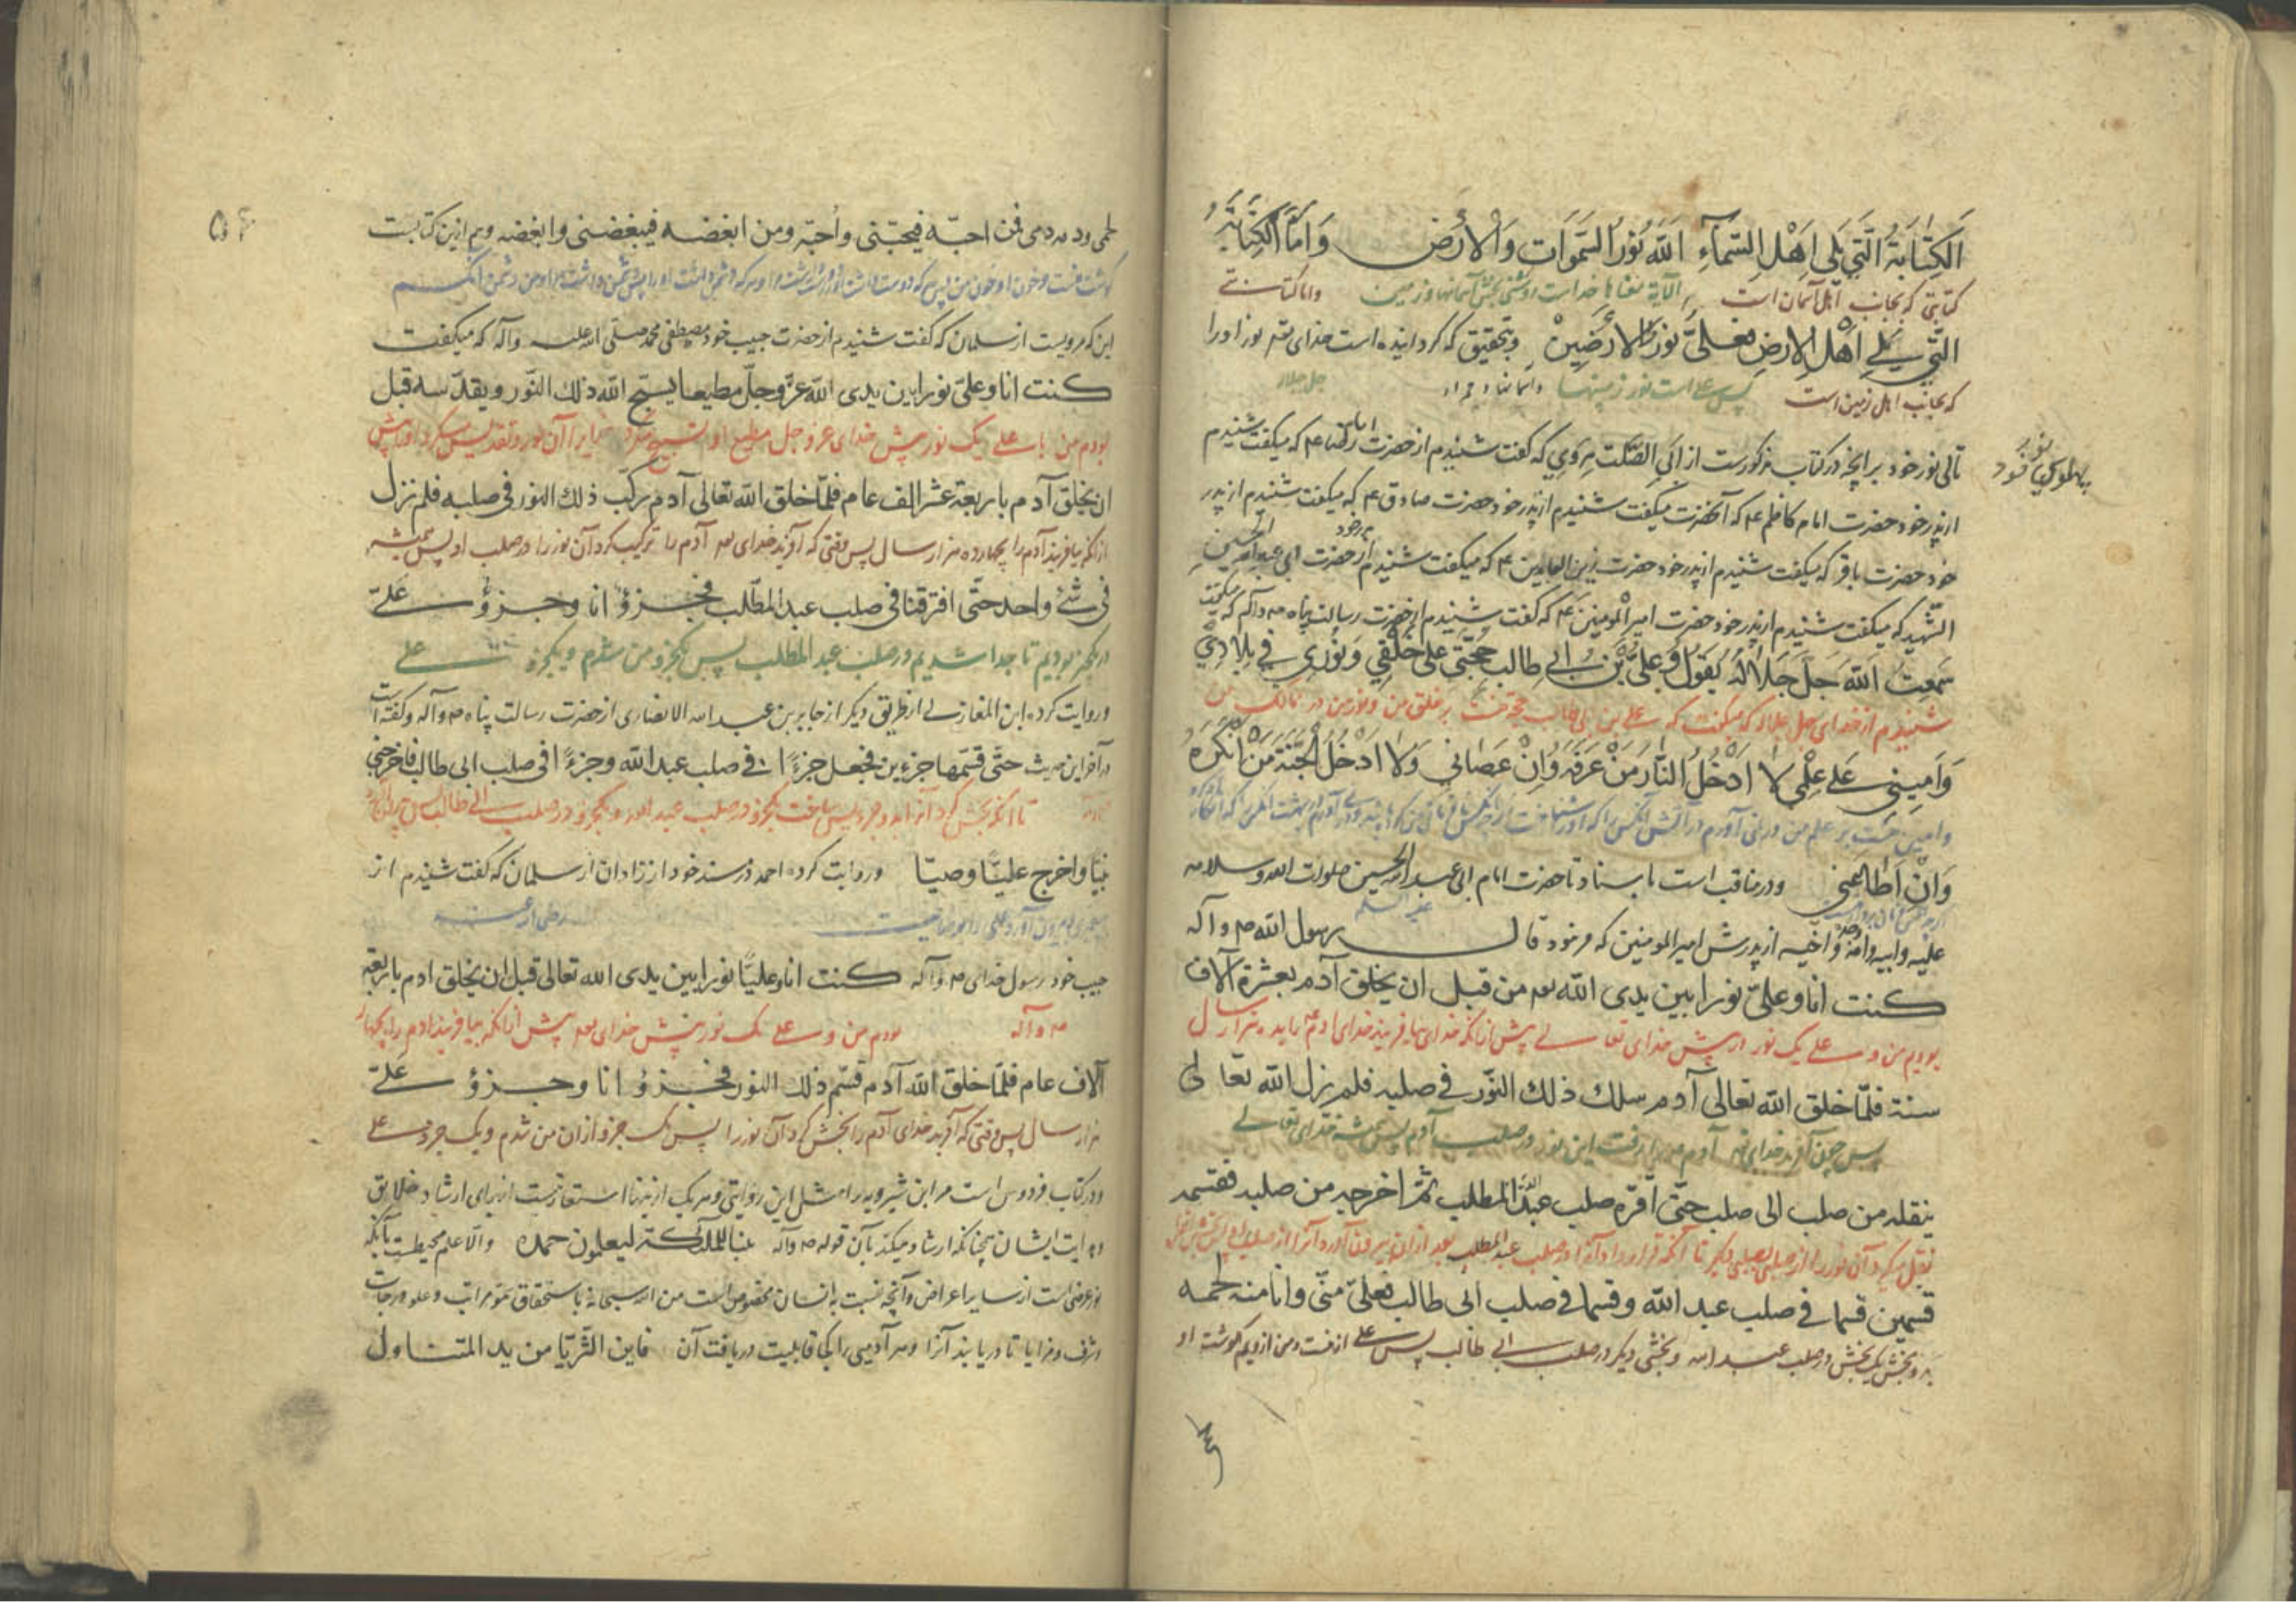 الكتابة التي يلي اهل السمآء الله نور السموات والارض واما الكتابة
کتابتی که بجانب اهل آسمان است
التي يلي اهل الارض فعليّ نور الارضين وبتحقیق که گردانیده است خدای نور او را
که بجانب اهل زمین است پس علی است نور زمینها جل جلاله
تالی نور خود برانچه در کتاب مذکورست از ابی الصلت هروی که گفت شنیدم از حضرت امام رضا ع که میگفت شنیدم
از پدر خود حضرت امام کاظم ع که آنحضرت میگفت شنیدم از پدر خود حضرت صادق ع که میگفت شنیدم از پدر
خود حضرت باقر که میگفت شنیدم از پدر خود حضرت زین العابدین ع که میگفت شنیدم از پدر خود حضرت ابی عبد الله الحسین
الشهید که میگفت شنیدم از پدر خود حضرت امیر المومنین ع که گفت شنیدم از حضرت رسالت پناه ص و آله که میگفت
سمعت الله جل جلاله يقول وعليّ بن ابي طالب حجتي على خلقي ونوري في بلادي
شنیدم از خدای جل جلاله که میگفت که علی بن ابی طالب حجت منست بر خلق من و نور من در ممالک من
واميني على علمي لا ادخل النار من عرفه وان عصاني ولا ادخل الجنة من انكره
وامین منست بر علم من در نمی آورم در آتش آنکس را که
وان اطاعني ودر مناقب است باسناد تا حضرت امام ابی عبد الله الحسین صلوات الله وسلامه
علیه وابیه وامه وجده واخیه از پدرش امیر المومنین که فرمود قال رسول الله ص وآله
علیه السلم
كنت انا وعليّ نورا بين يدى الله تع من قبل ان يخلق آدم بعشرة آلاف
بودیم من و علی یک نور در پیش خدای تعالی پیش ازانکه خدای بیافریند خدای آدم ع را بده هزار سال
سنة فلمّا خلق الله تعالى آدم سلك ذلك النّور في صلبه فلم يزل الله تعالى
پس چون آفرید خدای تع آدم را رفت این نور در صلب آدم پس همیشه خدای تعالی
ينقله من صلب الى صلب حتّى اقرّه صلب عبد المطلب ثمّ اخرجه من صلبه فقسمه
نقل میکرد آن نور را از صلبی بصلبی دیگر تا آنکه قرار داد آنرا در صلب عبد المطلب بعد ازان بیرون آورد آنرا از صلب او
قسمين قسما في صلب عبد الله وقسما في صلب ابى طالب فعليّ منّي وانا منه لحمه
بدو بخش یک بخش در صلب عبد الله وبخشی دیگر در صلب ابی طالب پس علی از منست ومن از ویم گوشت او
لحمى ودمه دمى فمن احبّه فيحبّنى واُحبّه ومن ابغضه فيبغضنى وابغضه وهم ازین کتابست
گوشت منست وخون او خون من پس هر که دوست داشت
این که مرویست از سلمان که گفت شنیدم از حضرت حبیب خود مصطفی محمد صلّی الله علیه وآله که میگفت
كنت انا وعليّ نورا بين يدى الله عزّوجلّ مطيعا يسبّح الله ذلك النّور ويقدّسه قبل
بودم من با علی یک نور پیش خدای عز وجل مطیع او تسبیح میکرد خدایرا آن نور وتقدیس میکرد او را پیش
ان يخلق آدم باربعة عشر الف عام فلمّا خلق الله تعالى آدم ركّب ذلك النور فى صلبه فلم نزل
ازانکه بیافریند آدم را بچهارده هزار سال پس وقتی که آفرید خدای تع آدم را ترکیب کرد آن نور را در صلب او پس همیشه
فى شئ واحد حتّى افترقنا فى صلب عبد المطّلب فجزؤ انا وجزؤ عليّ
در یکچیز بودیم تا جدا شدیم در صلب عبد المطلب پس یکجزو من شدم ویکجزو علی
وروایت کرده ابن المغازلی از طریق دیگر از جابر بن عبد الله الانصاری از حضرت رسالت پناه ص وآله وگفته است
در آخر این حدیث حتّى قسّمها جزءين فجعل جزءًا في صلب عبد الله وجزءًا فى صلب ابى طالب فاخرجنى
تا آنکه بخش کرد آنرا بدو جزو پس ساخت یکجزو در صلب عبد الله ویکجزو در صلب ابی طالب
نبيّا واخرج عليّا وصيّا وروایت کرده احمد در مسند خود از زادان از سلمان که گفت شنیدم از
رضی الله عنه
حبیب خود رسول خدای ص وآله كنت انا وعليّا نورا بين يدى الله تعالى قبل ان يخلق ادم باربعة
ص وآله بودم من و علی یک نور پیش خدای تع پیش ازانکه بیافریند ادم را بچهار
آلاف عام فلمّا خلق الله آدم قسّم ذلك النور فجزؤ انا وجزؤ عليّ
هزار سال پس وقتی که آفرید خدای آدم را بخش کرد آن نور را پس یک جزو ازان من شدم ویک جزو علی
ودر کتاب فردوس است مر ابن شیرویه را مثل این روایتی وهر یک ازینها استعارتست از برای ارشاد خلایق
وهدایت ایشان چنانکه ارشاد میکند بآن قوله ص وآله والّا علم محیطست بآنکه
نور عرضی است از سایر اعراض وآنچه نسبت بانسان مخصوص است من الله سبحانه باستحقاق نمو مراتب وعلو درجات
وشرف ومزایا تا دریابند آنرا وهر آدمیی را کجا قابلیت دریافت آن فاين الثّريّا من يد المتناول
۵۶